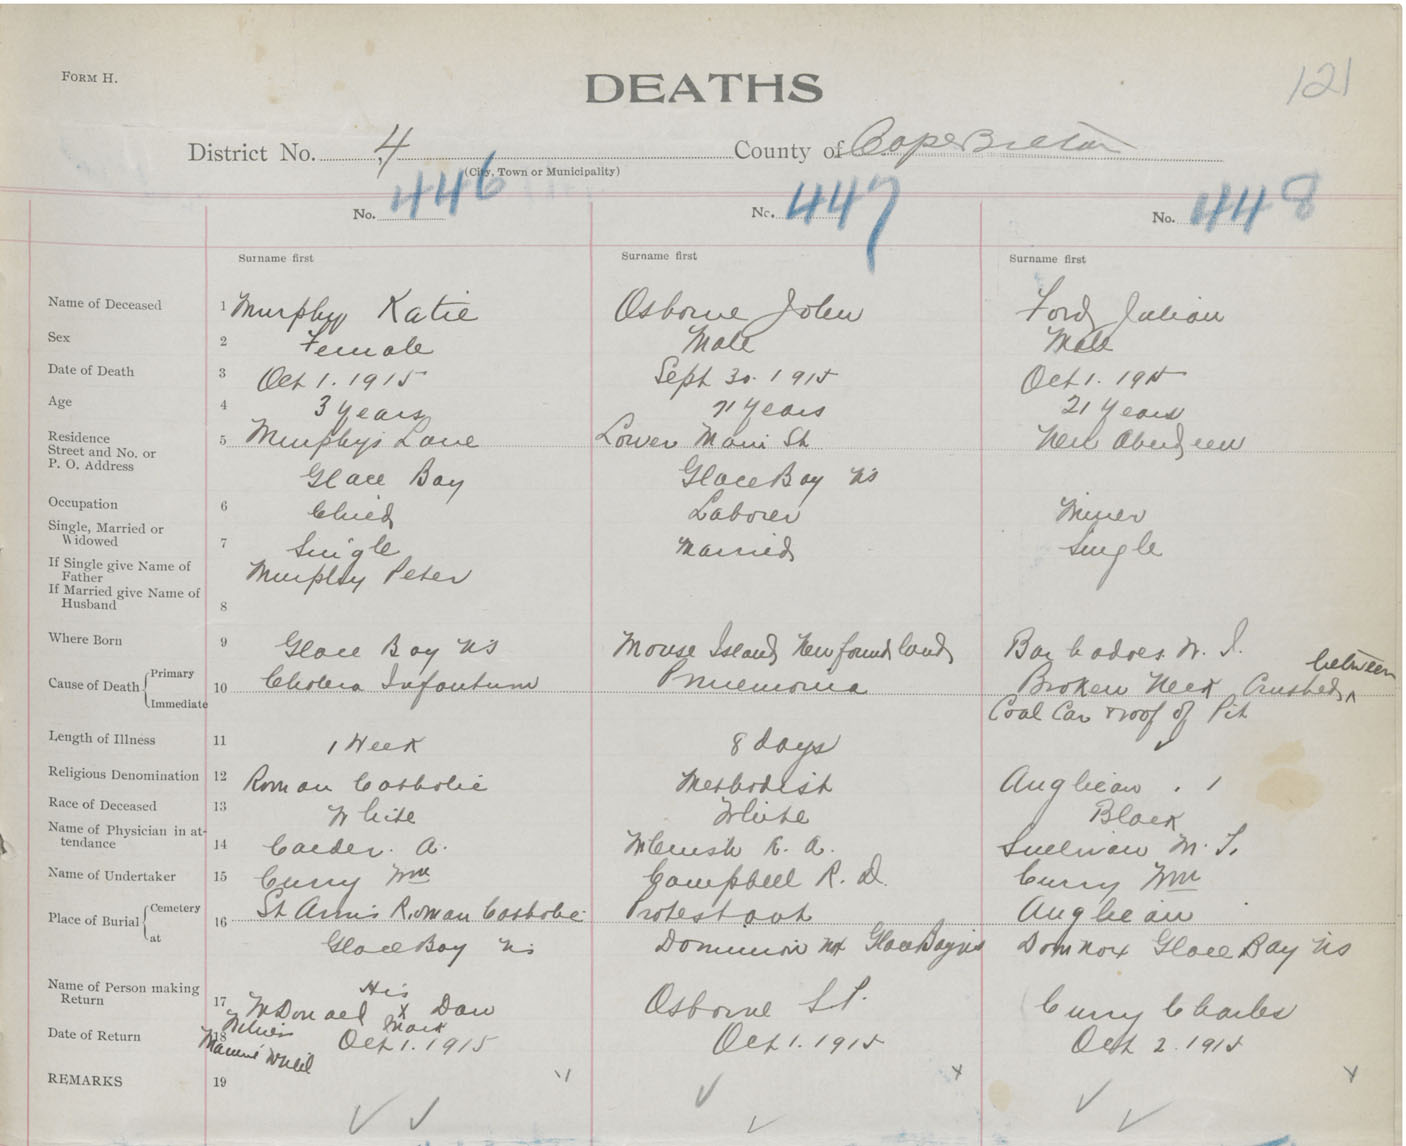 FORM H.
DEATHS
121
District No. 4 County of Cape Breton
(City, Town or Municipality)
No. 446 No. 447 No. 448
Surname first Surname first Surname first
Name of Deceased 1 Murphy Katie Osborne John Ford Julian
Sex 2 Female Male Male
Date of Death 3 Oct 1. 1915 Sept 30. 1915 Oct 1. 1915
Age 4 3 Years 71 Years 21 Years
Residence Street and No. or P. O. Address 5 Murphys Lane Lower Main St New Aberdeen
Glace Bay Glace Bay NS
Occupation 6 Child Laborer Miner
Single, Married or Widowed 7 Single Married Single
If Single give Name of Father Murphy Peter
If Married give Name of Husband 8
Where Born 9 Glace Bay NS Mouse Island Newfoundland Barbadoes. W. I.
Cause of Death { Primary Immediate 10 Cholera Infantum Pnuemonia Broken Neck Crushed between
Coal Car & roof of Pit
Length of Illness 11 1 Week 8 days
Religious Denomination 12 Roman Catholic Methodist Anglican . 1
Race of Deceased 13 White White Black
Name of Physician in attendance 14 Calder. A. K. A. Sullivan M. T.
Name of Undertaker 15 Curry Wm Campbell R. D. Curry Wm
Place of Burial { Cemetery 16 St Anns Roman Catholic Protestant Anglican
at Glace Bay NS Dominion Glace Bay NS Glace Bay NS
Name of Person making Return 17 McDonald His x Mark Dan Osborne Curry Charles
Date of Return 18 Oct 1. 1915 Oct 1. 1915 Oct 2. 1915
REMARKS 19